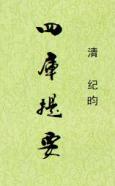 四庫提要
清 纪昀